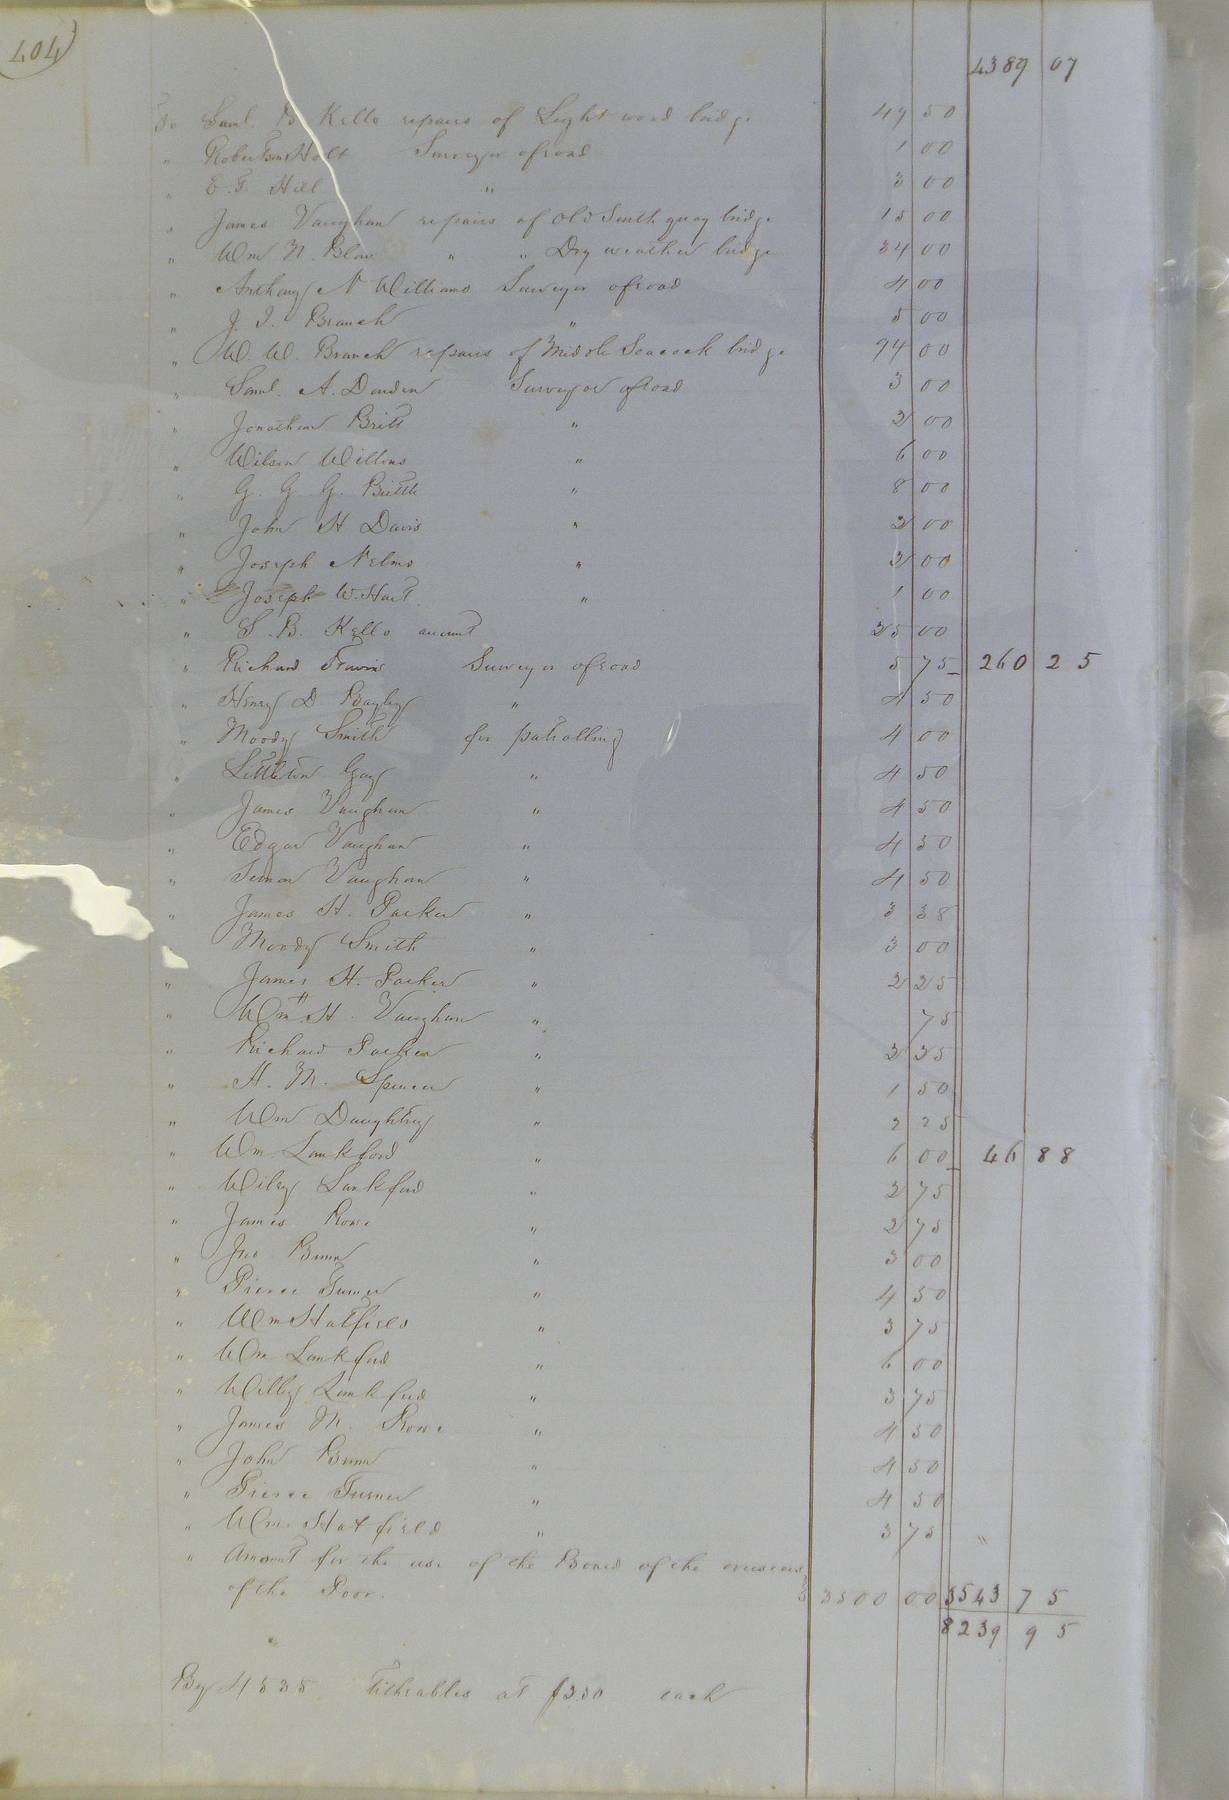 404
4389 07
To Saml. B. Kello repairs of Light wood bridge 49 50
" Robertson Holt Surveyor of road 1 00
" E. T. Hill " 3 00
" James Vaughan repairs of Old South quay bridge 15 00
" Wm N. Blow " " Dry weather bridge 34 00
" Anthony N Williams Surveyor of road 4 00
" J. I. Branch " 5 00
" W. W. Branch repairs of Middle Seacock bridge 94 00
" Saml. A. Darden Surveyor of road 3 00
" Jonathan Britt " 2 00
" Wilson Williams " 6 00
" G. G. G. Brittle " 8 00
" John H Davis " 2 00
" Joseph Nelms " 2 00
" Joseph W. Hart " 1 00
" S. B. Kello account 25 00
" Richard Travis Surveyor of road 5 75 260 25
" Henry D. Bagley " 4 50
" Moody Smith for patrolling 4 00
" Littleton Gay " 4 50
" James Vaughan " 4 50
" Edgar Vaughan " 4 50
" Simon Vaughan " 4 50
" James H. Parker " 3 38
" Moody Smith " 3 00
" James H. Parker " 2 25
" Wm H. Vaughan " 75
" Richard Parker " 2 25
" H. M. Spencer " 1 50
" Wm Daughtry " 2 25
" Wm Lankford " 6 00 46 88
" Wiley Lankford " 2 75
" James Rowe " 2 75
" Jno Bunn " 3 00
" Pierce Turner " 4 50
" Wm Hatfield " 3 75
" Wm Lankford " 6 00
" Willey Lankford " 3 75
" James M. Rowe " 4 50
" John Bunn " 4 50
" Pierce Turner " 4 50
" Wm. Hatfield " 3 75 "
" Amount for the use of the Board of the overseers
of the Poor. 3500 00 3543 75
8239 95
By 4535 Titheables at $3.50 each